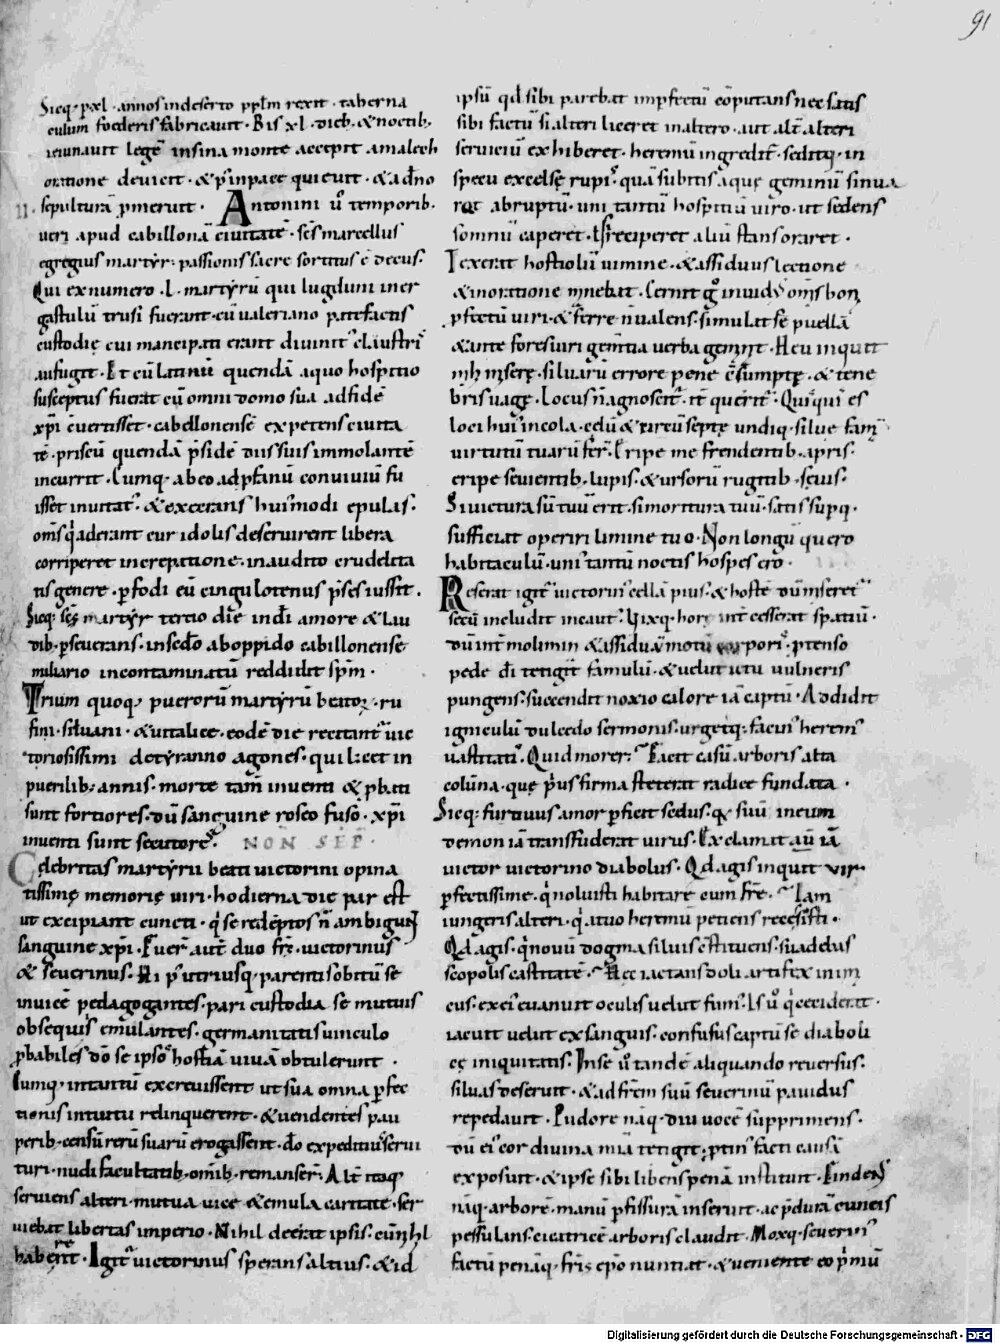 91
Sicq; p xl. annos in deserto pplm rexit. taberna
culum foederis fabricavit. Bis xl. dieb. & noctib.
ieiunavit legē in sina monte accepit amalech
oratione devicit. & p in pace quievit. & a dno
II. sepulturā pmeruit. Antonini ū temporib.
veri apud cabillonā civitatē. scs marcellus
egregius martyr. passionis sacre sortitus ē decus.
Qui ex numero. l. martyrū qui lugduni in er
gastulū trusi fuerant. cū valeriano patefactis
custodię cui mancipati erant divinit claustris
aufugit. Et cū latinū quendā a quo hospitio
susceptus fuerat cū omni domo sua ad fidē
xpi cvertisset. cabellonensē expetens civita
tē. priscū quendā psidē diis suis immolantē
incurrit. Cumq. ab eo ad pfanū convivium fu
isset invitat. & execrans hui modi epulas.
oms q aderant cur idolis deservirent libera
corriperet increpatione. inaudito crudelita
tis genere. pfodi eū cingulo tenus pses iussit.
Sicq; scs martyr tercio die in di amore & lau
dib. pseverans. in sedo ab oppido cabillonense
miliario incontaminatū reddidit spm.
Trium quoq; puerorū martyrū beator. ru
fini. silvani. & vitalice. eodē die recitant vic
toriosissimi de tyranno agones. qui licet in
puerilib; annis. morte tam inventi & pbati
sunt fortiores. dū sanguine roseo fuso. xpi
inventi sunt secutores. NON SEP.
Celebritas martyrii beati victorini opina
tissimę memorię viri. hodierna die par est
ut excipiant cuncti. q se redēptos n ambigunt
sanguine xpi. Fuer aut duo frs. victorinus
& severinus. Hi p utriusq; parentis obitū se
invicē pedagogantes. pari custodia se mutuis
obsequiis emulantes. germanitatis vinculo
pbabiles dō se ipsos hostiā vivā obtulerunt.
Cumq; intantū excrevissent ut sua omnia pfec
tionis intuitu relinquerent. & vendentes pau
perib. censū rerū suarū erogassent. dō expeditius servi
turi. nudi facultatib. omib. remanser. Alt itaq;
serviens alteri. mutua vice & emula caritate. ser
viebat libertas imperio. Nihil deerat ipsis. cū nihil
haberent. Igit victorinus sperans altius. & id
ipsū qd sibi parebat impfectū cōputans nec satis
sibi factū si alteri liceret in altero. aut alt alteri
serviciū exhiberet. heremū ingredit. seditq; in
specu excelsę rupis. quā subtus aquę geminū sinua
rat abruptū. uni tantū hospitiū viro. ut sedens
somnū caperet. ls reciperet aliū stans oraret.
Texerat hostiolū vimine. & assiduus lectione
& in oratione manebat. Cernit g invidus oms bonz
pfectū viri. & ferre n valens. simulat se puellā
& ante fores viri gementia verba geminat. Heu inquit
mihi miserę. silvarū errore pene cōsumptę. & tene
bris vagę. Locus n agnoscit. iter querit. Quisqui es
loci hui incola. cedū & circūseptę undiq. silve fam
virtutū tuarū fer. Eripe me frendentib. apris.
eripe sevientib. lupis. & ursorū rugitib. sevis.
Si victura sū tuū erit. si moritura tuū. satis supq.
sufficiat operiri limine tuo. Non longū quero
habitaculū. uni tantū noctis hospes ero.
Reserat igit victorin cellā pius. & hostē dū miseret
secū includit incaut. Vixq. hore int cesserat spatiū.
dū int molimin & assiduū motū corporis. ptenso
pede di tetigit famulū. & velut ictu vulneris
pungens. succendit noxio calore iā captū. Addidit
igniculū dulcedo sermonis. urgetq; facini heremi
vastitati. Quid morer? Facit casū arboris alta
colūna. quę pus firma steterat radice fundata.
Sicq; furtivus amor pficit scelus. q; suū in eum
demon iā transfuderat virus. Exclamat aū iā
victor victorino diabolus. Qd agis inquit vir
pfectissime. q noluisti habitare cum fre. Iam
iungeris alteri. q a tuo heremū petiens recessisti.
Qd agis. q novū dogma silvis cstituens. suaddus
scopolis castitatē. Hec iactans doli artifex inim
cus. ex ei evanuit oculis velut fum. Is ū q ceciderat.
iacuit velut exsanguis. confusus captū se diaboli
cę iniquitatis. In se ū tandē aliquando reversus.
silvas deseruit. & ad frem suū severinū pavidus
repedavit. Pudore naq. diu vocē supprimens.
dū ei cor divina mia tetigit. ptin facti causā
exposuit. & ipse sibi libens penā instituit. Findens
naq. arborē. manū p fissurā inseruit. ac p dura cuneis
pessulans. cicatricē arboris claudit. Moxq. severin
factū penāq. fris epo nuntiat. & veniente eo p mū
Digitalisierung gefördert durch die Deutsche Forschungsgemeinschaft - DFG